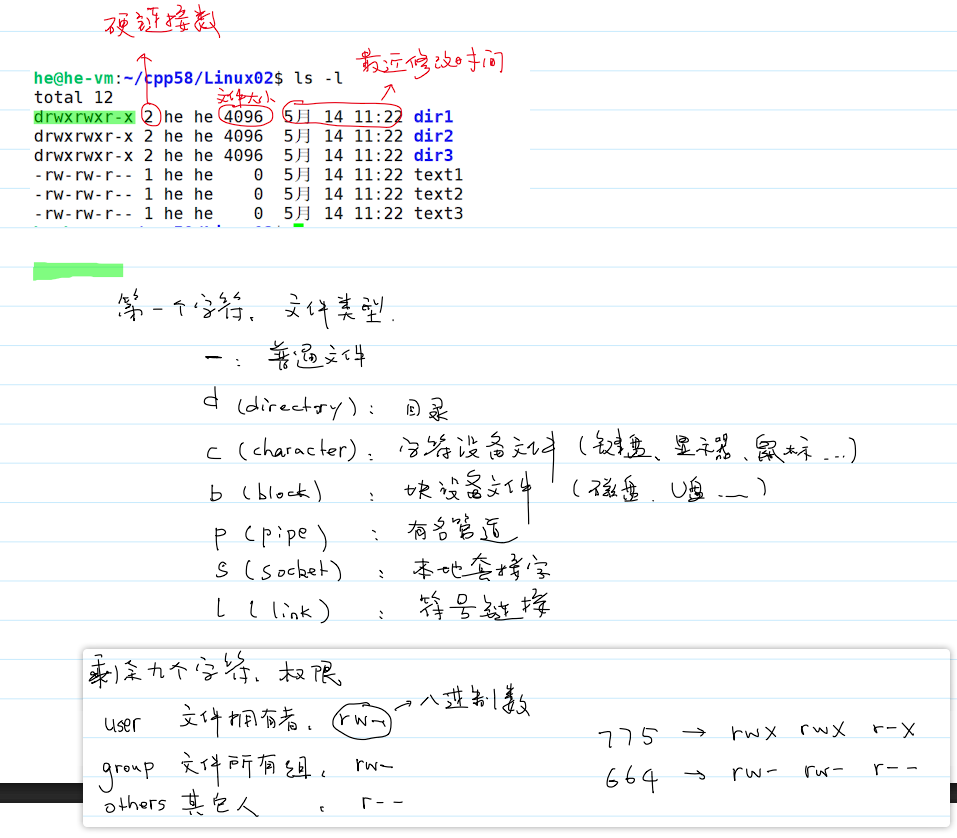 硬链接数
最近修改时间
he@he-vm:~/cpp58/Linux02$ ls -l
total 12
文件大小
drwxrwxr-x 2 he he 4096 5月 14 11:22 dir1
drwxrwxr-x 2 he he 4096 5月 14 11:22 dir2
drwxrwxr-x 2 he he 4096 5月 14 11:22 dir3
-rw-rw-r-- 1 he he 0 5月 14 11:22 text1
-rw-rw-r-- 1 he he 0 5月 14 11:22 text2
-rw-rw-r-- 1 he he 0 5月 14 11:22 text3
第一个字符、文件类型.
-: 普通文件
d (directory): 目录
c (character): 字符设备文件 (键盘、显示器、鼠标...)
b (block) : 块设备文件 (磁盘、U盘...)
p (pipe) : 有名管道
s (socket) : 本地套接字
l (link) : 符号链接
剩余九个字符、权限
user 文件拥有者: rw- → 八进制数
775 → rwx rwx r-x
group 文件所有组: rw-
664 → rw- rw- r--
others 其它人 : r--